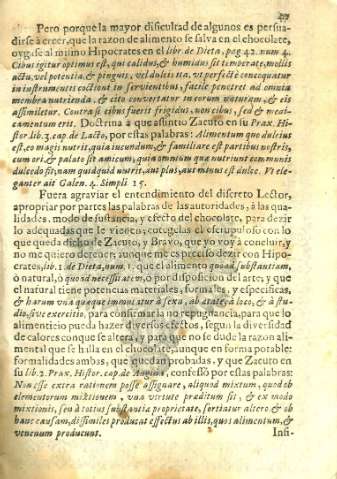 Pero porque la mayor dificultad de algunos es persua-
dirse à creer, que la razon de alimento se salva en el chocolate,
oygase al mismo Hipocrates en el libr. de Dieta, pag. 42. num. 4.
Cibus igitur optimus est, qui calidus, & humidus sit temperatè, mollis
actu, vel potentia, & pinguis, vel dulcis ita, vt perfectè concoquatur
in instrumentis coctioni in servientibus, facile penetret ad omnia
membra nutrienda, & cito convertatur in eorum naturam, & eis
assimiletur. Contra si cibus fuerit frigidus, non cibus, sed & medi-
camentum erit. Doctrina à que assintiò Zacuto en su Prax. Hi-
stor lib. 3. cap. de Lacto, por estas palabras: Alimentum quo dulcius
est, eo magis nutrit, quia iucundum, & familiare est partibus nostris,
cum ori, & palato sit amicum, quia omnium quæ nutriunt communis
dulcedo sit; nam quidquid nutrit, aut plus, aut minus est dulce. Vt ele-
ganter ait Galen. 4. Simpli 15.
Fuera agraviar el entendimiento del discreto Lector,
apropriar por partes las palabras de las autoridades, à las qua-
lidades, modo de sustancia, y efecto del chocolate, para dezir
lo adequadas que le vienen; cotegelas el escrupuloso con lo
que queda dicho de Zacuto, y Bravo, que yo voy à concluir, y
no me quiero detener; aunque me es preciso dezir con Hipo-
crates, lib. 1. de Dieta, num. 1. que el alimento quoad substantiam,
ò natural, ò quoad necessitatem, ò por disposicion del arte; y que
el natural tiene potencias materiales, formales, y especificas,
& harum vna quæque immutatur à sexu, ab ætate, à loco, & à stu-
dio, sive exercitio, para confirmar la no repugnancia, para que lo
alimenticio pueda hazer diversos efectos, segun la diversidad
de calores con que se altera; y para que no se dude la razon ali-
mental que se halla en el chocolate, aunque en forma potable;
formalidades ambas, que quedan probadas, y que Zacuto en
su lib. 2. Prax. Histor. cap. de Angina, confessò por estas palabras:
Non esse extra rationem posse assignare, aliquod mixtum, quod ob
elementorum mixtionem, vna virtute præditum sit, & ex modo
mixtionis, seu à totius substantia proprietate, sortiatur altero & ob
hanc causam, dissimiles producat effectus ab illis, quos alimentum, &
venenum producunt.
Insi-